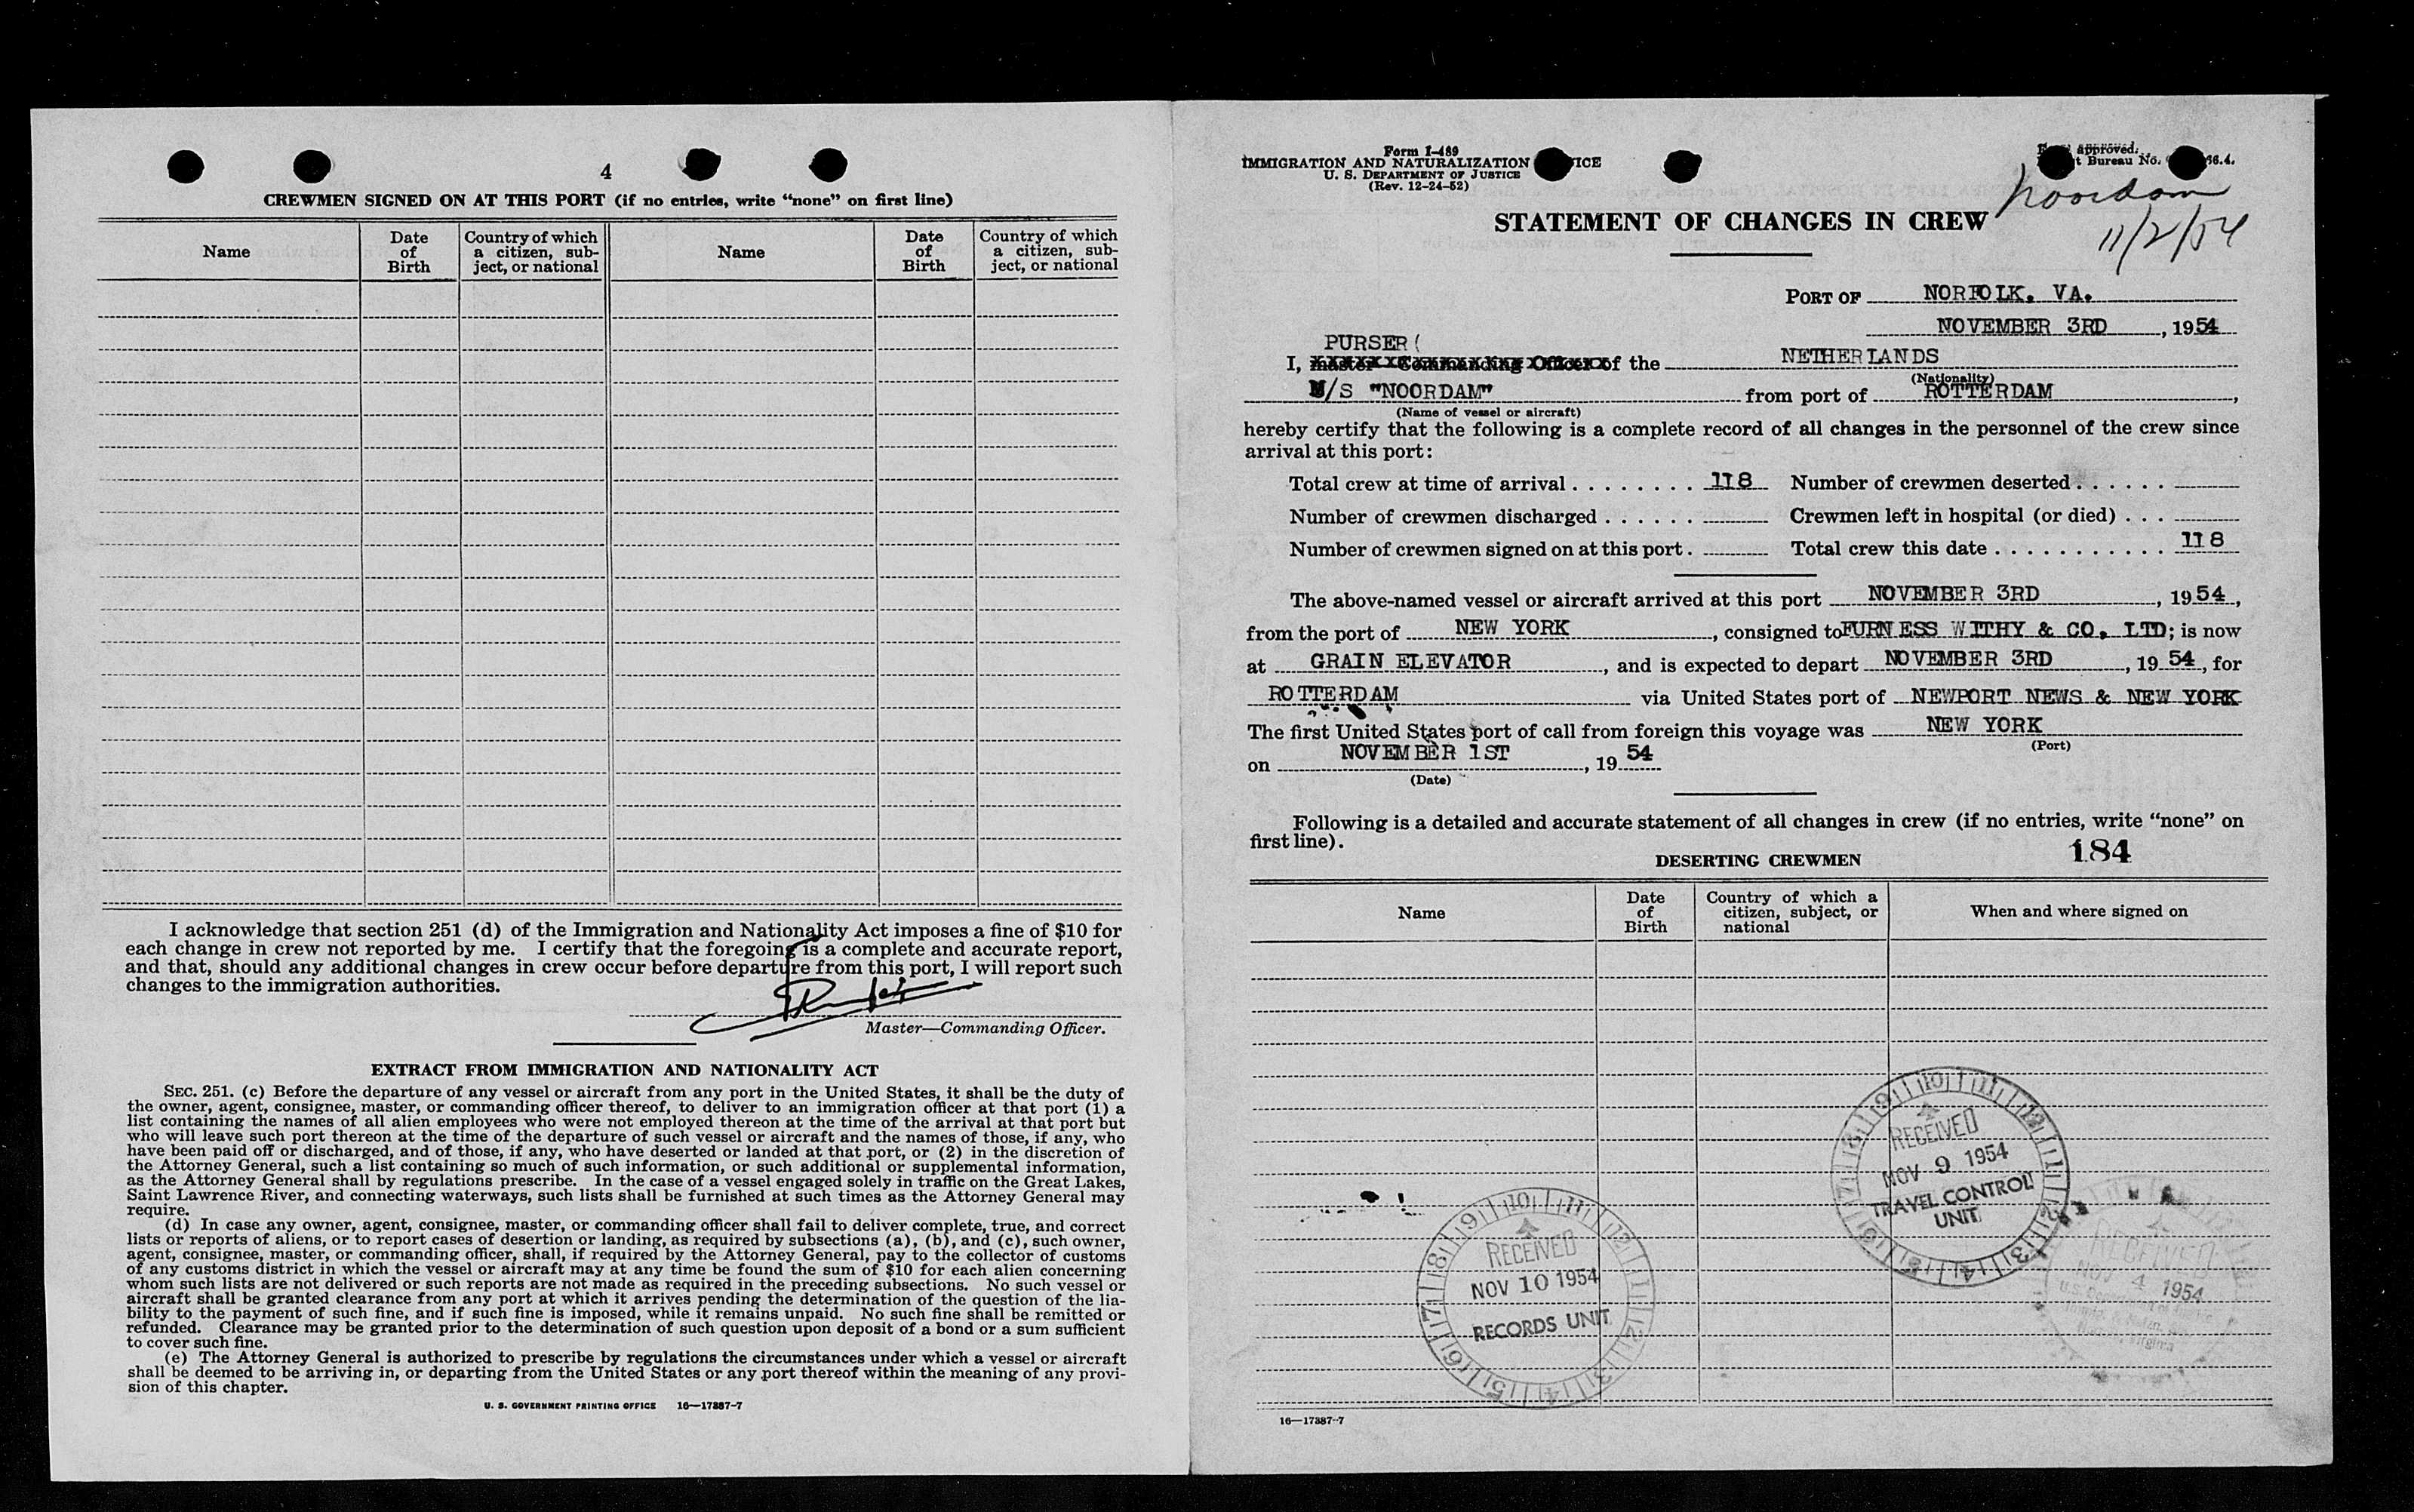 4
CREWMEN SIGNED ON AT THIS PORT (if no entries, write “none” on first line)
Name
Date of Birth
Country of which a citizen, sub-
ject, or national
Name
Date of Birth
Country of which a citizen, sub-
ject, or national
I acknowledge that section 251 (d) of the Immigration and Nationality Act imposes a fine of $10 for
each change in crew not reported by me. I certify that the foregoing is a complete and accurate report,
and that, should any additional changes in crew occur before departure from this port, I will report such
changes to the immigration authorities.
Master—Commanding Officer.
EXTRACT FROM IMMIGRATION AND NATIONALITY ACT
SEC. 251. (c) Before the departure of any vessel or aircraft from any port in the United States, it shall be the duty of
the owner, agent, consignee, master, or commanding officer thereof, to deliver to an immigration officer at that port (1) a
list containing the names of all alien employees who were not employed thereon at the time of the arrival at that port but
who will leave such port thereon at the time of the departure of such vessel or aircraft and the names of those, if any, who
have been paid off or discharged, and of those, if any, who have deserted or landed at that port, or (2) in the discretion of
the Attorney General, such a list containing so much of such information, or such additional or supplemental information,
as the Attorney General shall by regulations prescribe. In the case of a vessel engaged solely in traffic on the Great Lakes,
Saint Lawrence River, and connecting waterways, such lists shall be furnished at such times as the Attorney General may
require.
(d) In case any owner, agent, consignee, master, or commanding officer shall fail to deliver complete, true, and correct
lists or reports of aliens, or to report cases of desertion or landing, as required by subsections (a), (b), and (c), such owner,
agent, consignee, master, or commanding officer, shall, if required by the Attorney General, pay to the collector of customs
of any customs district in which the vessel or aircraft may at any time be found the sum of $10 for each alien concerning
whom such lists are not delivered or such reports are not made as required in the preceding subsections. No such vessel or
aircraft shall be granted clearance from any port at which it arrives pending the determination of the question of the lia-
bility to the payment of such fine, and if such fine is imposed, while it remains unpaid. No such fine shall be remitted or
refunded. Clearance may be granted prior to the determination of such question upon deposit of a bond or a sum sufficient
to cover such fine.
(e) The Attorney General is authorized to prescribe by regulations the circumstances under which a vessel or aircraft
shall be deemed to be arriving in, or departing from the United States or any port thereof within the meaning of any provi-
sion of this chapter.
U. S. GOVERNMENT PRINTING OFFICE 16—17887-7
Form I-489
IMMIGRATION AND NATURALIZATION
U. S. DEPARTMENT OF JUSTICE
(Rev. 12-24-52)
approved.
Bureau No.
Noordam
11/2/54
STATEMENT OF CHANGES IN CREW
PORT OF NORFOLK. VA.
NOVEMBER 3RD, 1954
PURSER (
I, Master—Commanding Officer of the NETHERLANDS
(Nationality)
M/S "NOORDAM" from port of ROTTERDAM,
(Name of vessel or aircraft)
hereby certify that the following is a complete record of all changes in the personnel of the crew since
arrival at this port:
Total crew at time of arrival . . . . . . . . 118 Number of crewmen deserted . . . . . .
Number of crewmen discharged . . . . . . Crewmen left in hospital (or died) . . .
Number of crewmen signed on at this port . Total crew this date . . . . . . . . . . . 118
The above-named vessel or aircraft arrived at this port NOVEMBER 3RD, 1954,
from the port of NEW YORK, consigned to FURNESS WITHY & CO. LTD; is now
at GRAIN ELEVATOR, and is expected to depart NOVEMBER 3RD, 19 54, for
ROTTERDAM via United States port of NEWPORT NEWS & NEW YORK
The first United States port of call from foreign this voyage was NEW YORK
(Port)
on NOVEMBER 1ST, 19 54
(Date)
Following is a detailed and accurate statement of all changes in crew (if no entries, write “none” on
first line).
184
DESERTING CREWMEN
Name
Date of Birth
Country of which a citizen, subject, or national
When and where signed on
RECEIVED
NOV 9 1954
TRAVEL CONTROL
UNIT
RECEIVED
NOV 10 1954
RECORDS UNIT
RECEIVED
NOV 4 1954
16—17887-7